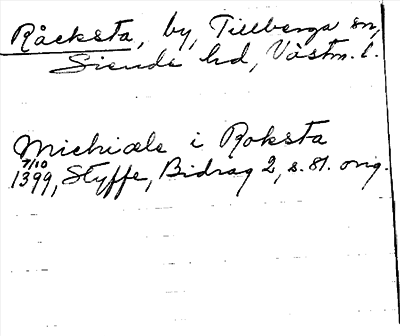 Råcksta, by, Tillberga sn,
Siende hd, Västm. l.
Michiæle i Roksta
7/10
1399, Styffe, Bidrag 2, s. 81. orig.